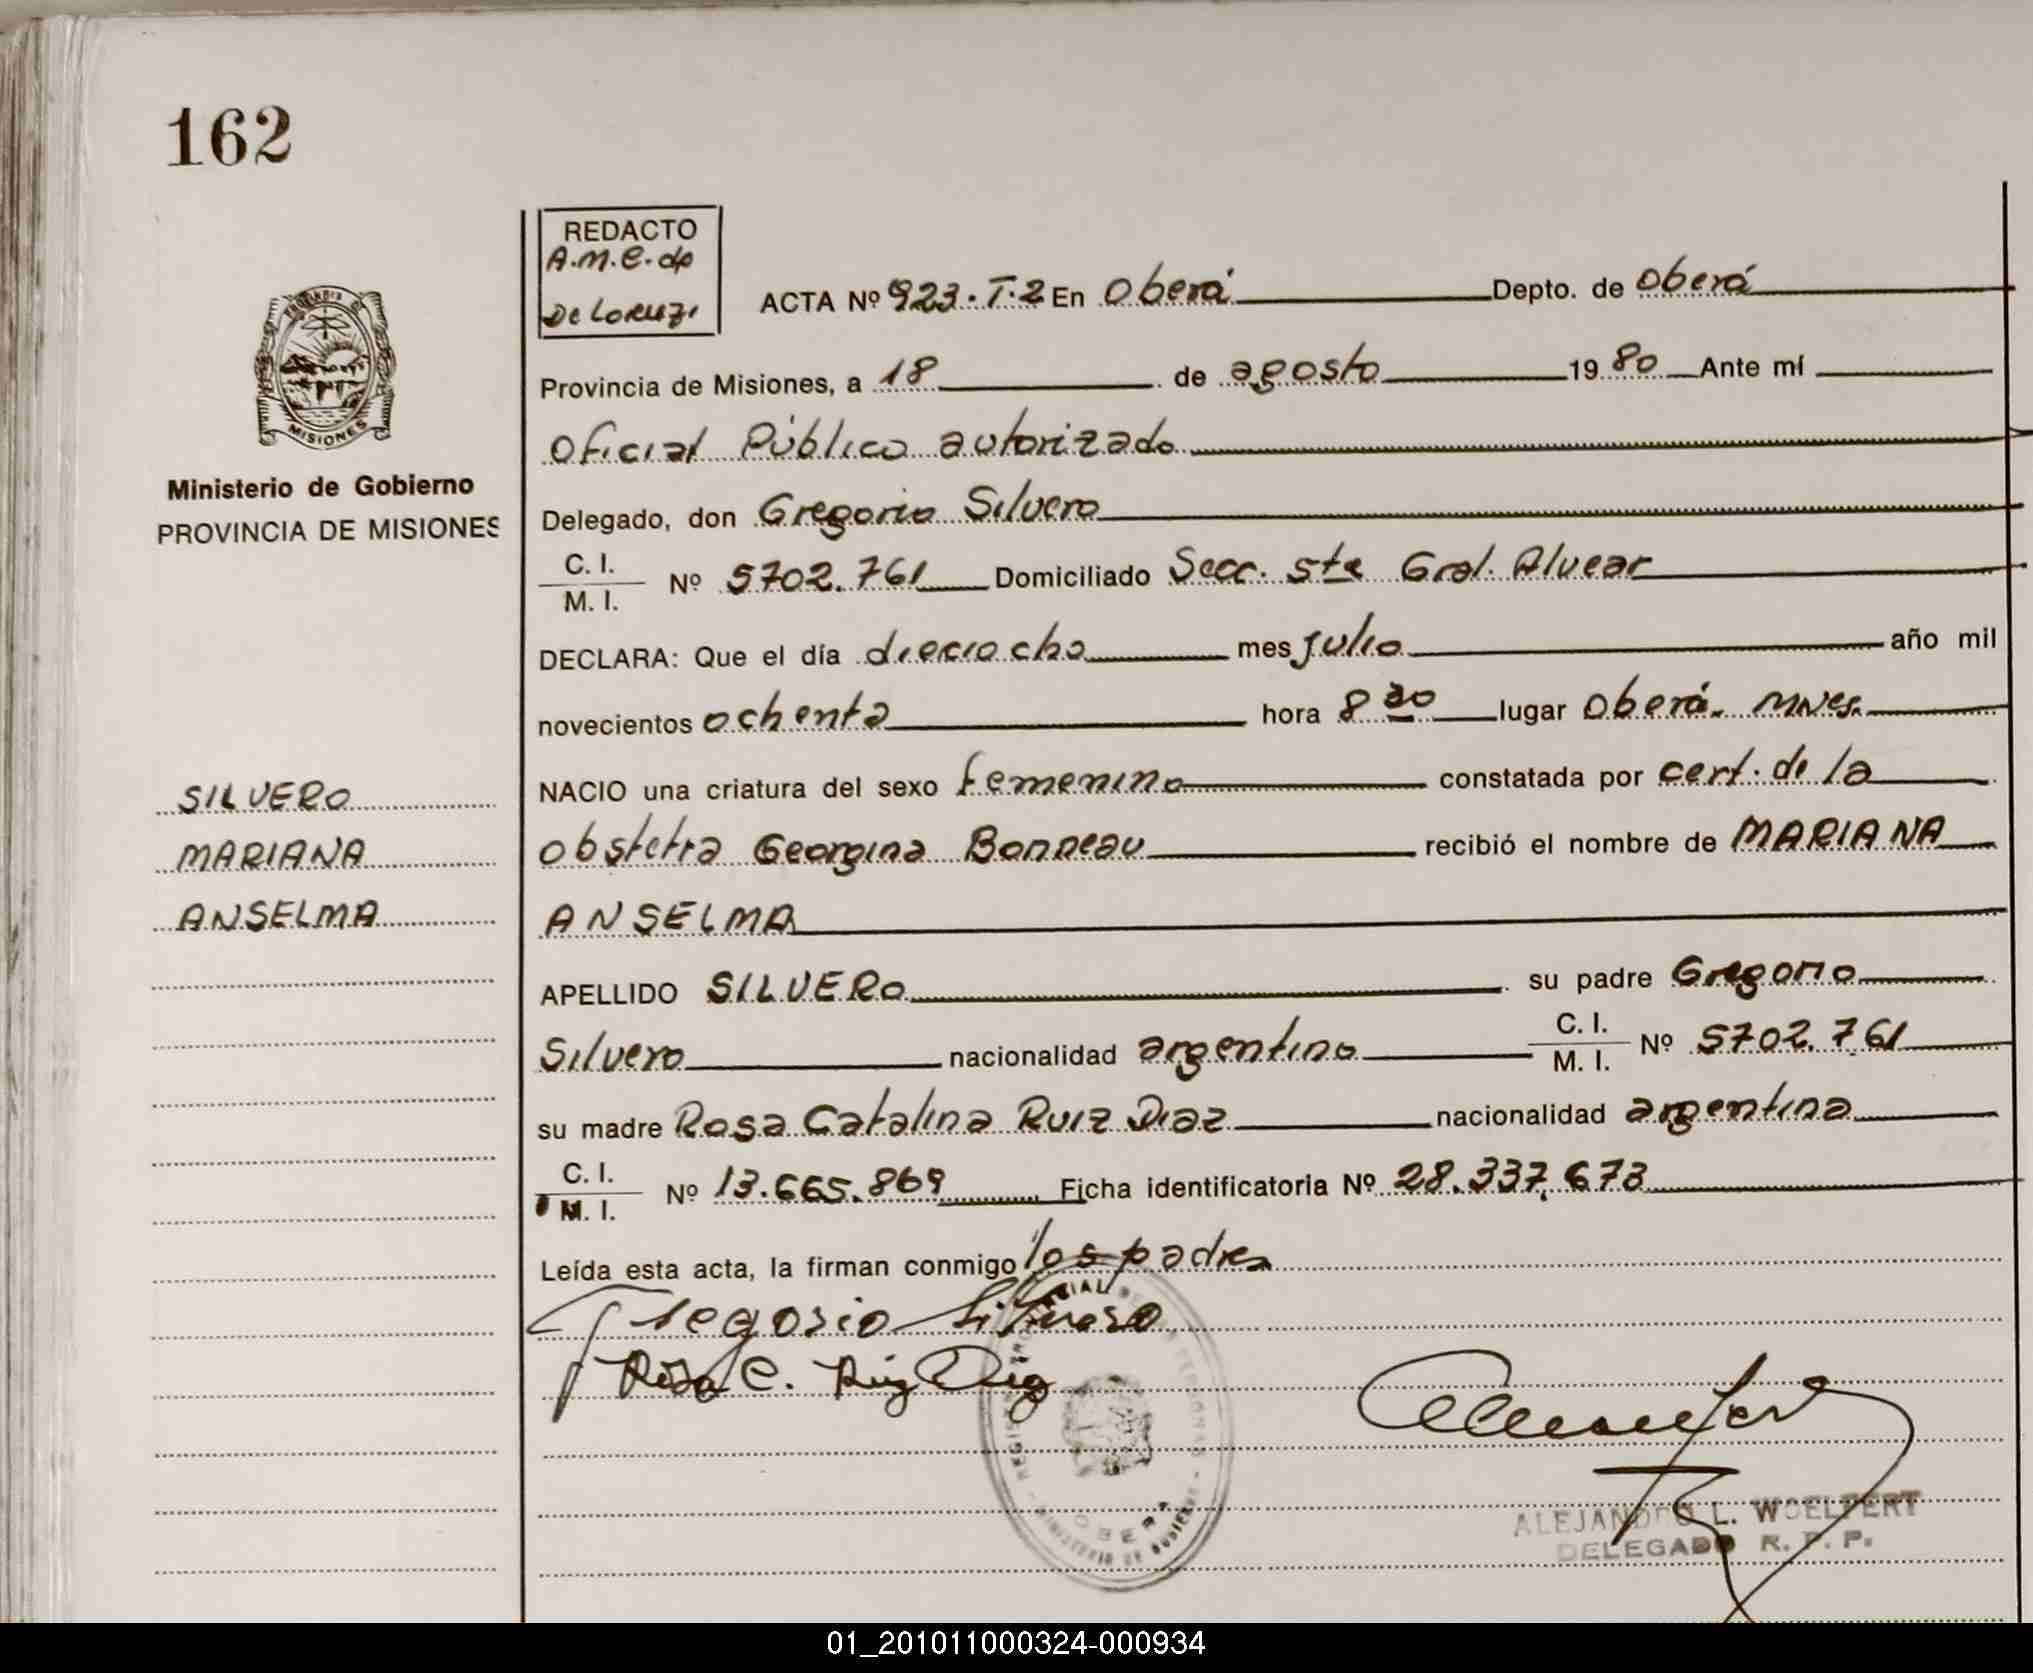 162
REDACTO
A.M.C. de
De Lorenzi
ACTA Nº 923. T.2 En Oberá Depto. de Oberá
Provincia de Misiones, a 18 de agosto 1980 Ante mí
Oficial Público autorizado
Delegado, don Gregorio Silvero
C. I.
M. I. Nº 5702.761 Domiciliado Secc. 5ta Gral. Alvear
DECLARA: Que el día dieciocho mes julio año mil
novecientos ochenta hora 8 lugar Oberá. Mnes.
NACIO una criatura del sexo femenino constatada por cert. de la
obstetra Georgina Bonneau recibió el nombre de MARIANA
ANSELMA
APELLIDO SILVERO su padre Gregorio
Silvero nacionalidad argentino C. I. M. I. Nº 5702.761
su madre Rosa Catalina Ruiz Diaz nacionalidad argentina
C. I.
M. I. Nº 13.665.869 Ficha identificatoria Nº 28.337.673
Leída esta acta, la firman conmigo los padres
Gregorio Silvero
Rosa C. Ruiz Diaz
ALEJANDRO L. WOELFERT
DELEGADO R. P. P.
MISIONES
Ministerio de Gobierno
PROVINCIA DE MISIONES
SILVERO
MARIANA
ANSELMA
OBERA
01_201011000324-000934